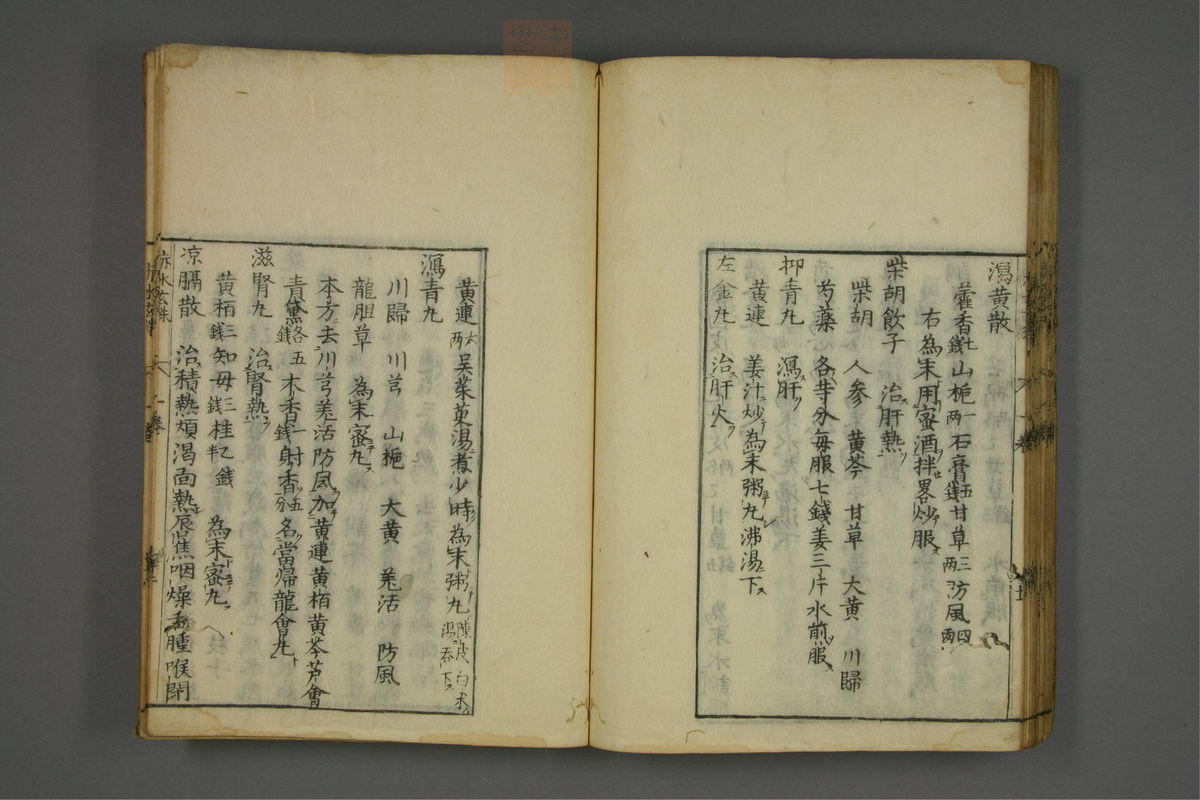 瀉黄散
藿香七錢山梔一兩石膏五錢甘草三兩防風四兩
右為末用蜜酒拌畧炒服
柴胡飲子 治肝熱
柴胡 人參 黄芩 甘草 大黄 川歸
芍藥 各等分毎服七錢姜三片水煎服
抑青丸 瀉肝
黄連 姜汁炒為末粥丸沸湯下
左金丸 治肝火
黄連六兩吳茱萸湯煮少時為末粥丸陳皮白朮湯吞下
瀉青丸
川歸 川芎 山梔 大黄 羌活 防風
龍胆草 為末蜜丸
本方去川芎羌活防風加黄連黄栢黄芩芦會
青黛各五錢木香一錢射香五分名當帰龍會丸
滋腎丸 治腎熱
黄栢三錢知毋三錢桂半錢 為末蜜丸
凉膈散 治積熱煩渇面熱唇焦咽燥舌腫喉閉